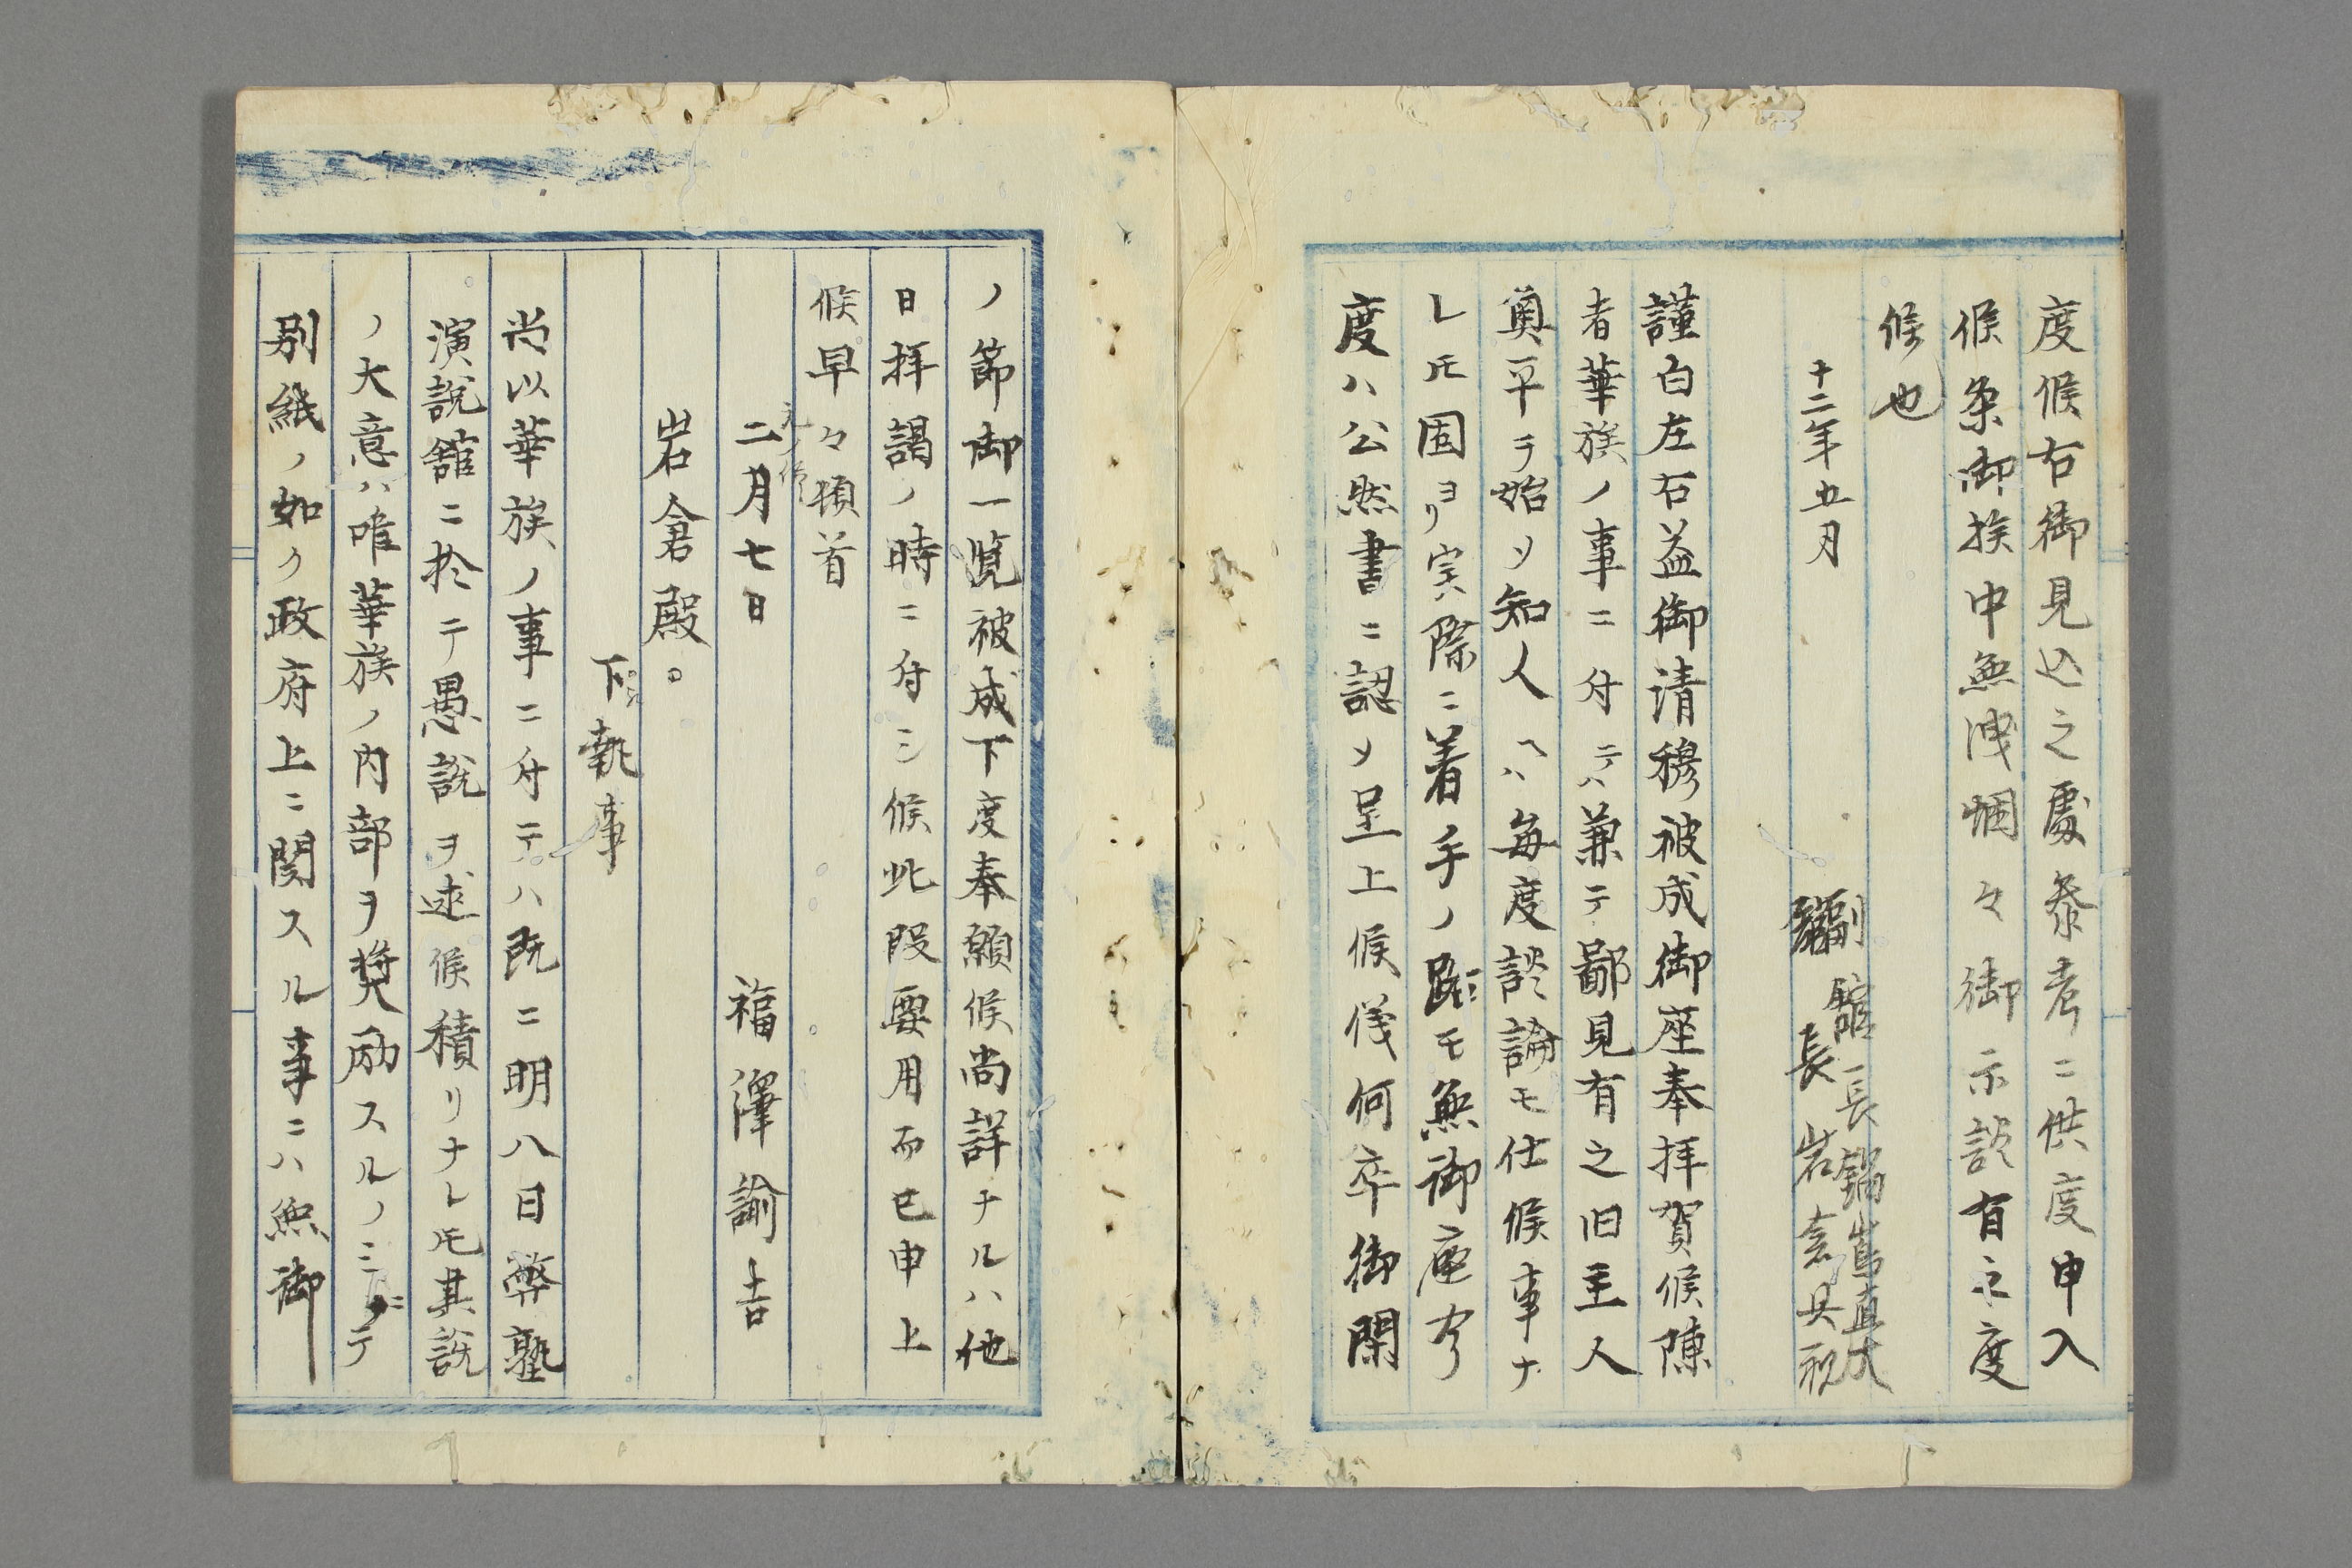 度候右御見込之處参考ニ供度申入
候条御族中無洩悃々御示談有之度
候也
十二年五月
副館長鍋島直大
館長岩倉具視
謹白左右益御清穆被成御座奉拝賀候陳
者華族ノ事ニ付テハ兼テ鄙見有之旧主人
奥平ヲ始ソ知人ヘハ毎度談論モ仕候事ナ
レ𪜈固ヨリ実際ニ着手ノ路モ無御座今
度ハ公然書ニ認メ呈上候儀何卒御閑
ノ節御一覧被成下度奉願候尚詳ナルハ他
日拝謁ノ時ニ付シ候此段要用而已申上
候早々頓首
二月七日 福澤諭吉
岩倉殿。
下執事
尚以華族ノ事ニ付テハ既ニ明八日弊塾
演説館ニ於テ愚説ヲ述候積リナレ𪜈其説
ノ大意ハ唯華族ノ内部ヲ奨励スルノミニテ
別紙ノ如ク政府上ニ関スル事ニハ無御